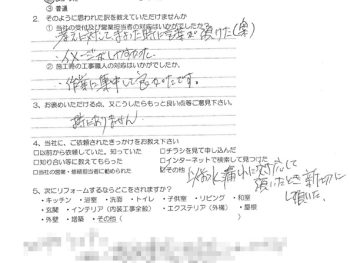 ③ 普通
2. そのように思われた訳を教えていただけませんか
① 当社の受付及び営業担当者の対応はいかがでしたか?
に対して
イメージがしやすかった.
② 施工時の工事職人の対応はいかがでしたか。
作業に集中して良かったです。
3、お褒めいただける点、又こうしたらもっと良い点等ご意見下さい。
特にありません
4、当社に、ご依頼されたきっかけをお教え下さい
□以前から依頼していた。知っていた □チラシを見て申し込んだ
□知り合い等に教えてもらった □インターネットで検索して見つけた
□当社の営業・修繕担当者に勧められた ☑その他
以前水漏れに対応して
頂いたとき親切に
して頂いた。
5、次にリフォームするならどこをされますか?
・キッチン ・浴室 ・洗面 ・トイレ ・子供室 ・リビング ・和室
・玄関 ・インテリア(内装工事全般) ・エクステリア(外構) ・屋根
・外壁 ・増築 ・その他(